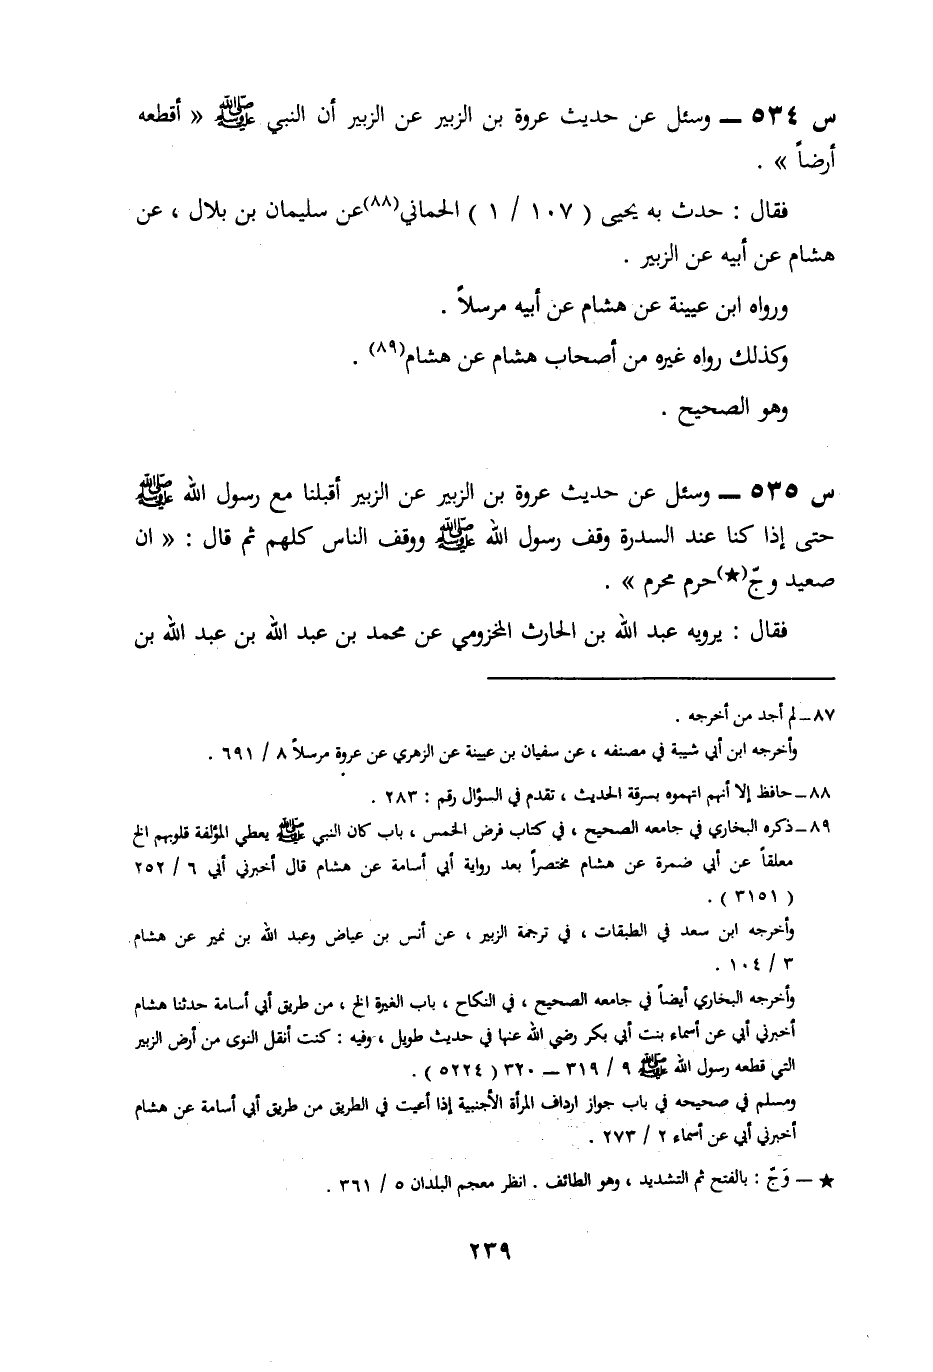 س ٥٣٤ ــ وسئل عن حديث عروة بن الزبير عن الزبير أن النبي ﷺ « أقطعه
أرضاً » .
فقال : حدث به يحيى ( ١٠٧ / ١ ) الحماني(٨٨)عن سليمان بن بلال ، عن
هشام عن أبيه عن الزبير .
ورواه ابن عيينة عن هشام عن أبيه مرسلاً .
وكذلك رواه غيره من أصحاب هشام عن هشام(٨٩) .
وهو الصحيح .
س ٥٣٥ ــ وسئل عن حديث عروة بن الزبير عن الزبير أقبلنا مع رسول الله ﷺ
حتى إذا كنا عند السدرة وقف رسول الله ﷺ ووقف الناس كلهم ثم قال : « ان
صعيد وجّ(★)حرم محرم » .
فقال : يرويه عبد الله بن الحارث المخزومي عن محمد بن عبد الله بن عبد الله بن
٨٧ــ لم أجد من أخرجه .
وأخرجه ابن أبي شيبة في مصنفه ، عن سفيان بن عيينة عن الزهري عن عروة مرسلاً ٨ / ٦٩١ .
٨٨ــ حافظ إلا أنهم اتهموه بسرقة الحديث ، تقدم في السؤال رقم : ٢٨٣ .
٨٩ــ ذكره البخاري في جامعه الصحيح ، في كتاب فرض الخمس ، باب كان النبي ﷺ يعطي المؤلفة قلوبهم الخ
معلقاً عن أبي ضمرة عن هشام مختصراً بعد رواية أبي أسامة عن هشام قال أخبرني أبي ٦ / ٢٥٢
( ٣١٥١ ) .
وأخرجه ابن سعد في الطبقات ، في ترجمة الزبير ، عن أنس بن عياض وعبد الله بن نمير عن هشام
٣ / ١٠٤ .
وأخرجه البخاري أيضاً في جامعه الصحيح ، في النكاح ، باب الغيرة الخ ، من طريق أبي أسامة حدثنا هشام
أخبرني أبي عن أسماء بنت أبي بكر رضي الله عنها في حديث طويل ، وفيه : كنت أنقل النوى من أرض الزبير
التي قطعه رسول الله ﷺ ٩ / ٣١٩ ــ ٣٢٠ ( ٥٢٢٤ ) .
ومسلم في صحيحه في باب جواز ارداف المرأة الأجنبية إذا أعيت في الطريق من طريق أبي أسامة عن هشام
أخبرني أبي عن أسماء ٢ / ٢٧٣ .
★ ــ وَجّ : بالفتح ثم التشديد ، وهو الطائف . انظر معجم البلدان ٥ / ٣٦١ .
٢٣٩